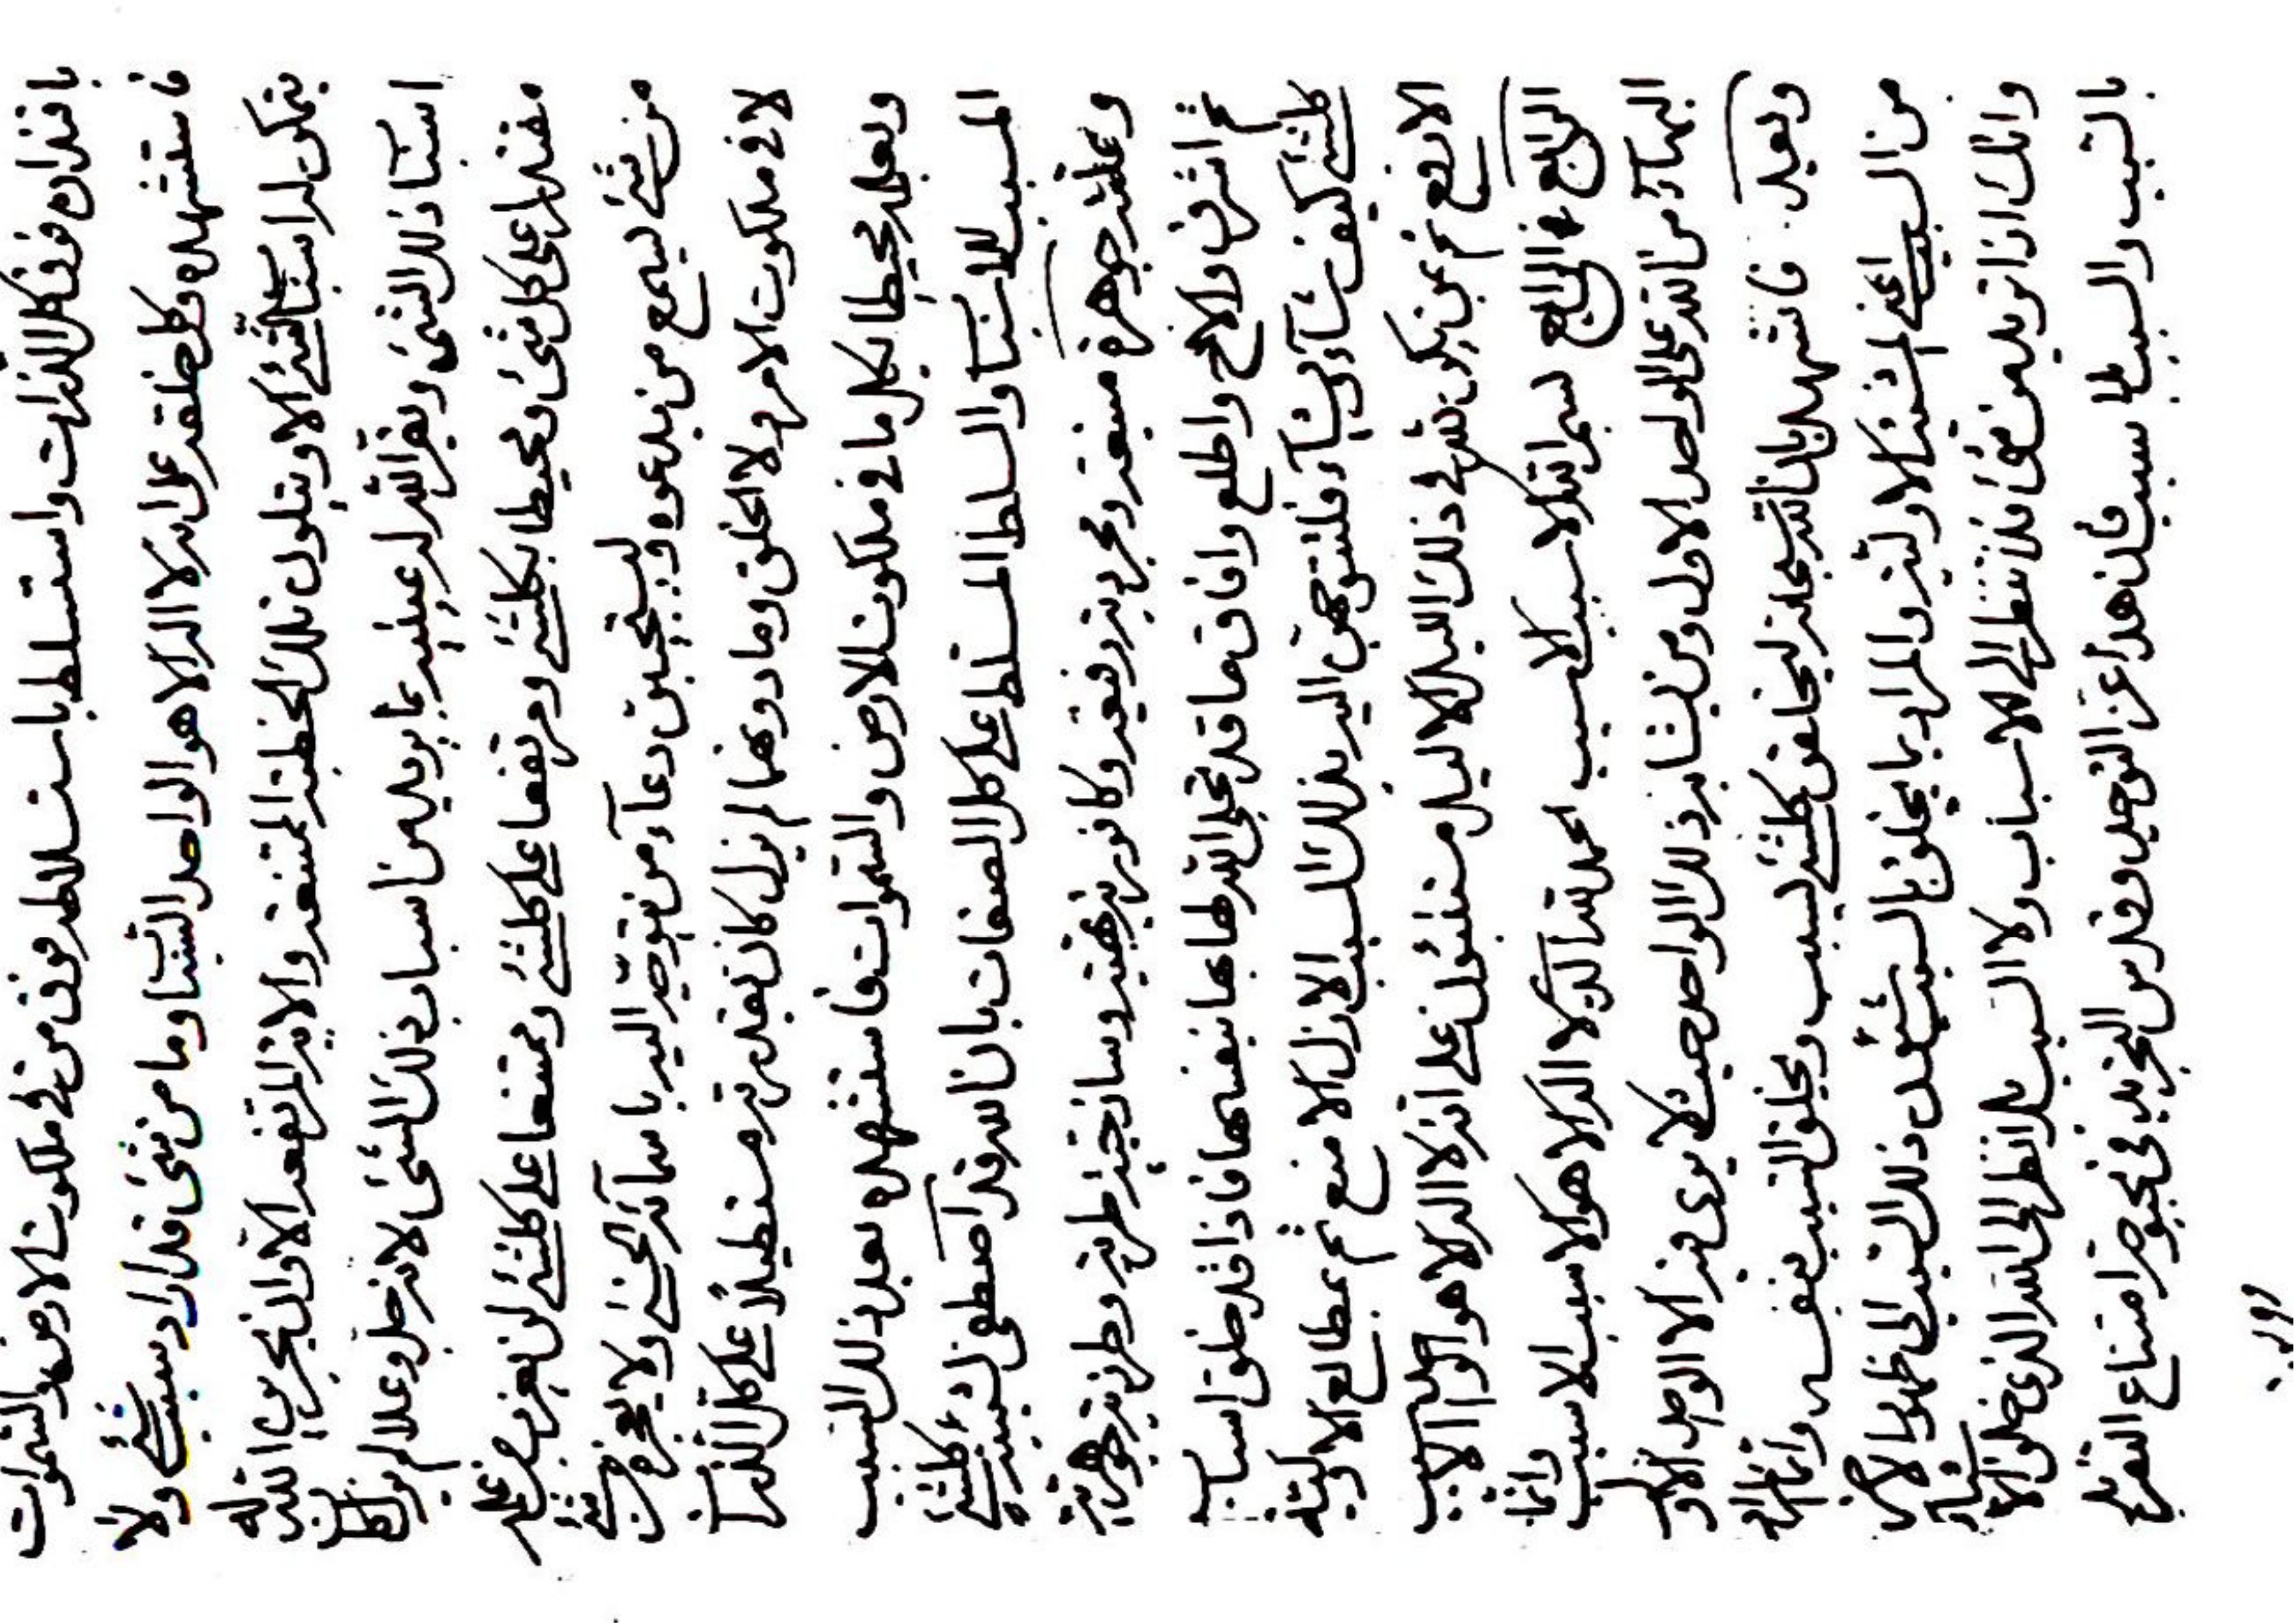 باقتدارہ فوق كل الذرات واستسلط باستسلاطه فوق من في ملكوت الارض والسموات
فاستشهده وكل خلقه على انه لا اله الا هو الواحد السبتا وما من شئ قد اراد سبب شئ ولا
يتمكن له استبا الشئ الا ويتلون تلك الخطبة الممتنعة والاية المرتفعة الا وان يجرين الله له
اسباب ذلك الشئ ويقرا الله له عينيه بما يريد من اسباب ذلك الشئ لانه جل وعلا لم يزل كان
مقتدرا على كل شئ ومحيطا بكلشئ ومرتفعا على كلشئ وممتنعا على كلشئ لن يعزب من علمه
من شئ ليسمع من يدعوه ويستجيب دعاء من يتوجه اليه باسمائه الحسنى ولا يعجزه من شئ
لا في ملكوت الامر ولا الخلق وما دونهما لم يزل كان بقدرته مستطيلا على كل الذرات
وبعلمه محيطا بكل ما في ملكوت الارض والسموات فاستشهده بعد ذلك السبب
المسبب للاستبا والسلط المسلط على كل الصفات بان الله قد اصطفى لمشيته كلشئ
وعلقته جوهرة منيعة ومجردية رفيعة وكافورية بهية وساذجية طرية وطرزية جوهرية
ثم اشرق والاح واطلع وافاق ما قد تجلى الله لها بها بنفسها فاذا قد خلق اسباب
كلشئ كيف شاء ويشاء فلتتوجهن اليه بذلك السبب الازل الامنع ثم بمطالع الاولية
الارفع ثم بمن يكون شهر في ذلك الليل الاليل مستنبئون على انه لا اله الا هو الحبيب
الرابع في الرابع بسم الله الاسبب الاسبب الحمد لله الذي لا اله الا هو الاسبب الاسبب وانما
البهاء من الله على الواحد الاول ومن يشابه ذلك الواحد حيث لا يرى فيه الا الواحد الاول
وبعد فاشهد بان الله سبحانه ليخلقن كلشئ بسبب ويخلق السبب بنفسه وانما المراد
من السبب اعني المشية الاولية والمراد بما يخلق بالسبب شئون ذلك السبب الى ظهور الاخرى
وانك اذا تريد من شئ فلا تنظر الى الاسباب ولا السبب بل انظر الى الله الذي خلق الاشياء
بالسبب والسبب لها سبب فان هذا عز التوحيد وقدس التجريد في بحبوحة امتناع التفريد